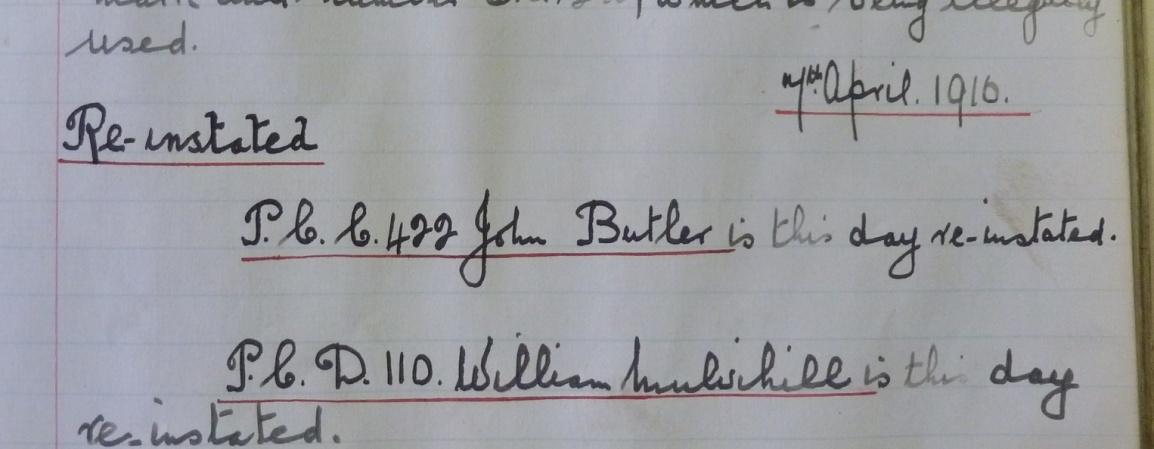 mark and number which is being illegally
used.
7th. April. 1916.
Re-instated
P.C. C. 422 John Butler is this day re-instated.
P.C. D. 110. William Mulvihill is this day
re-instated.